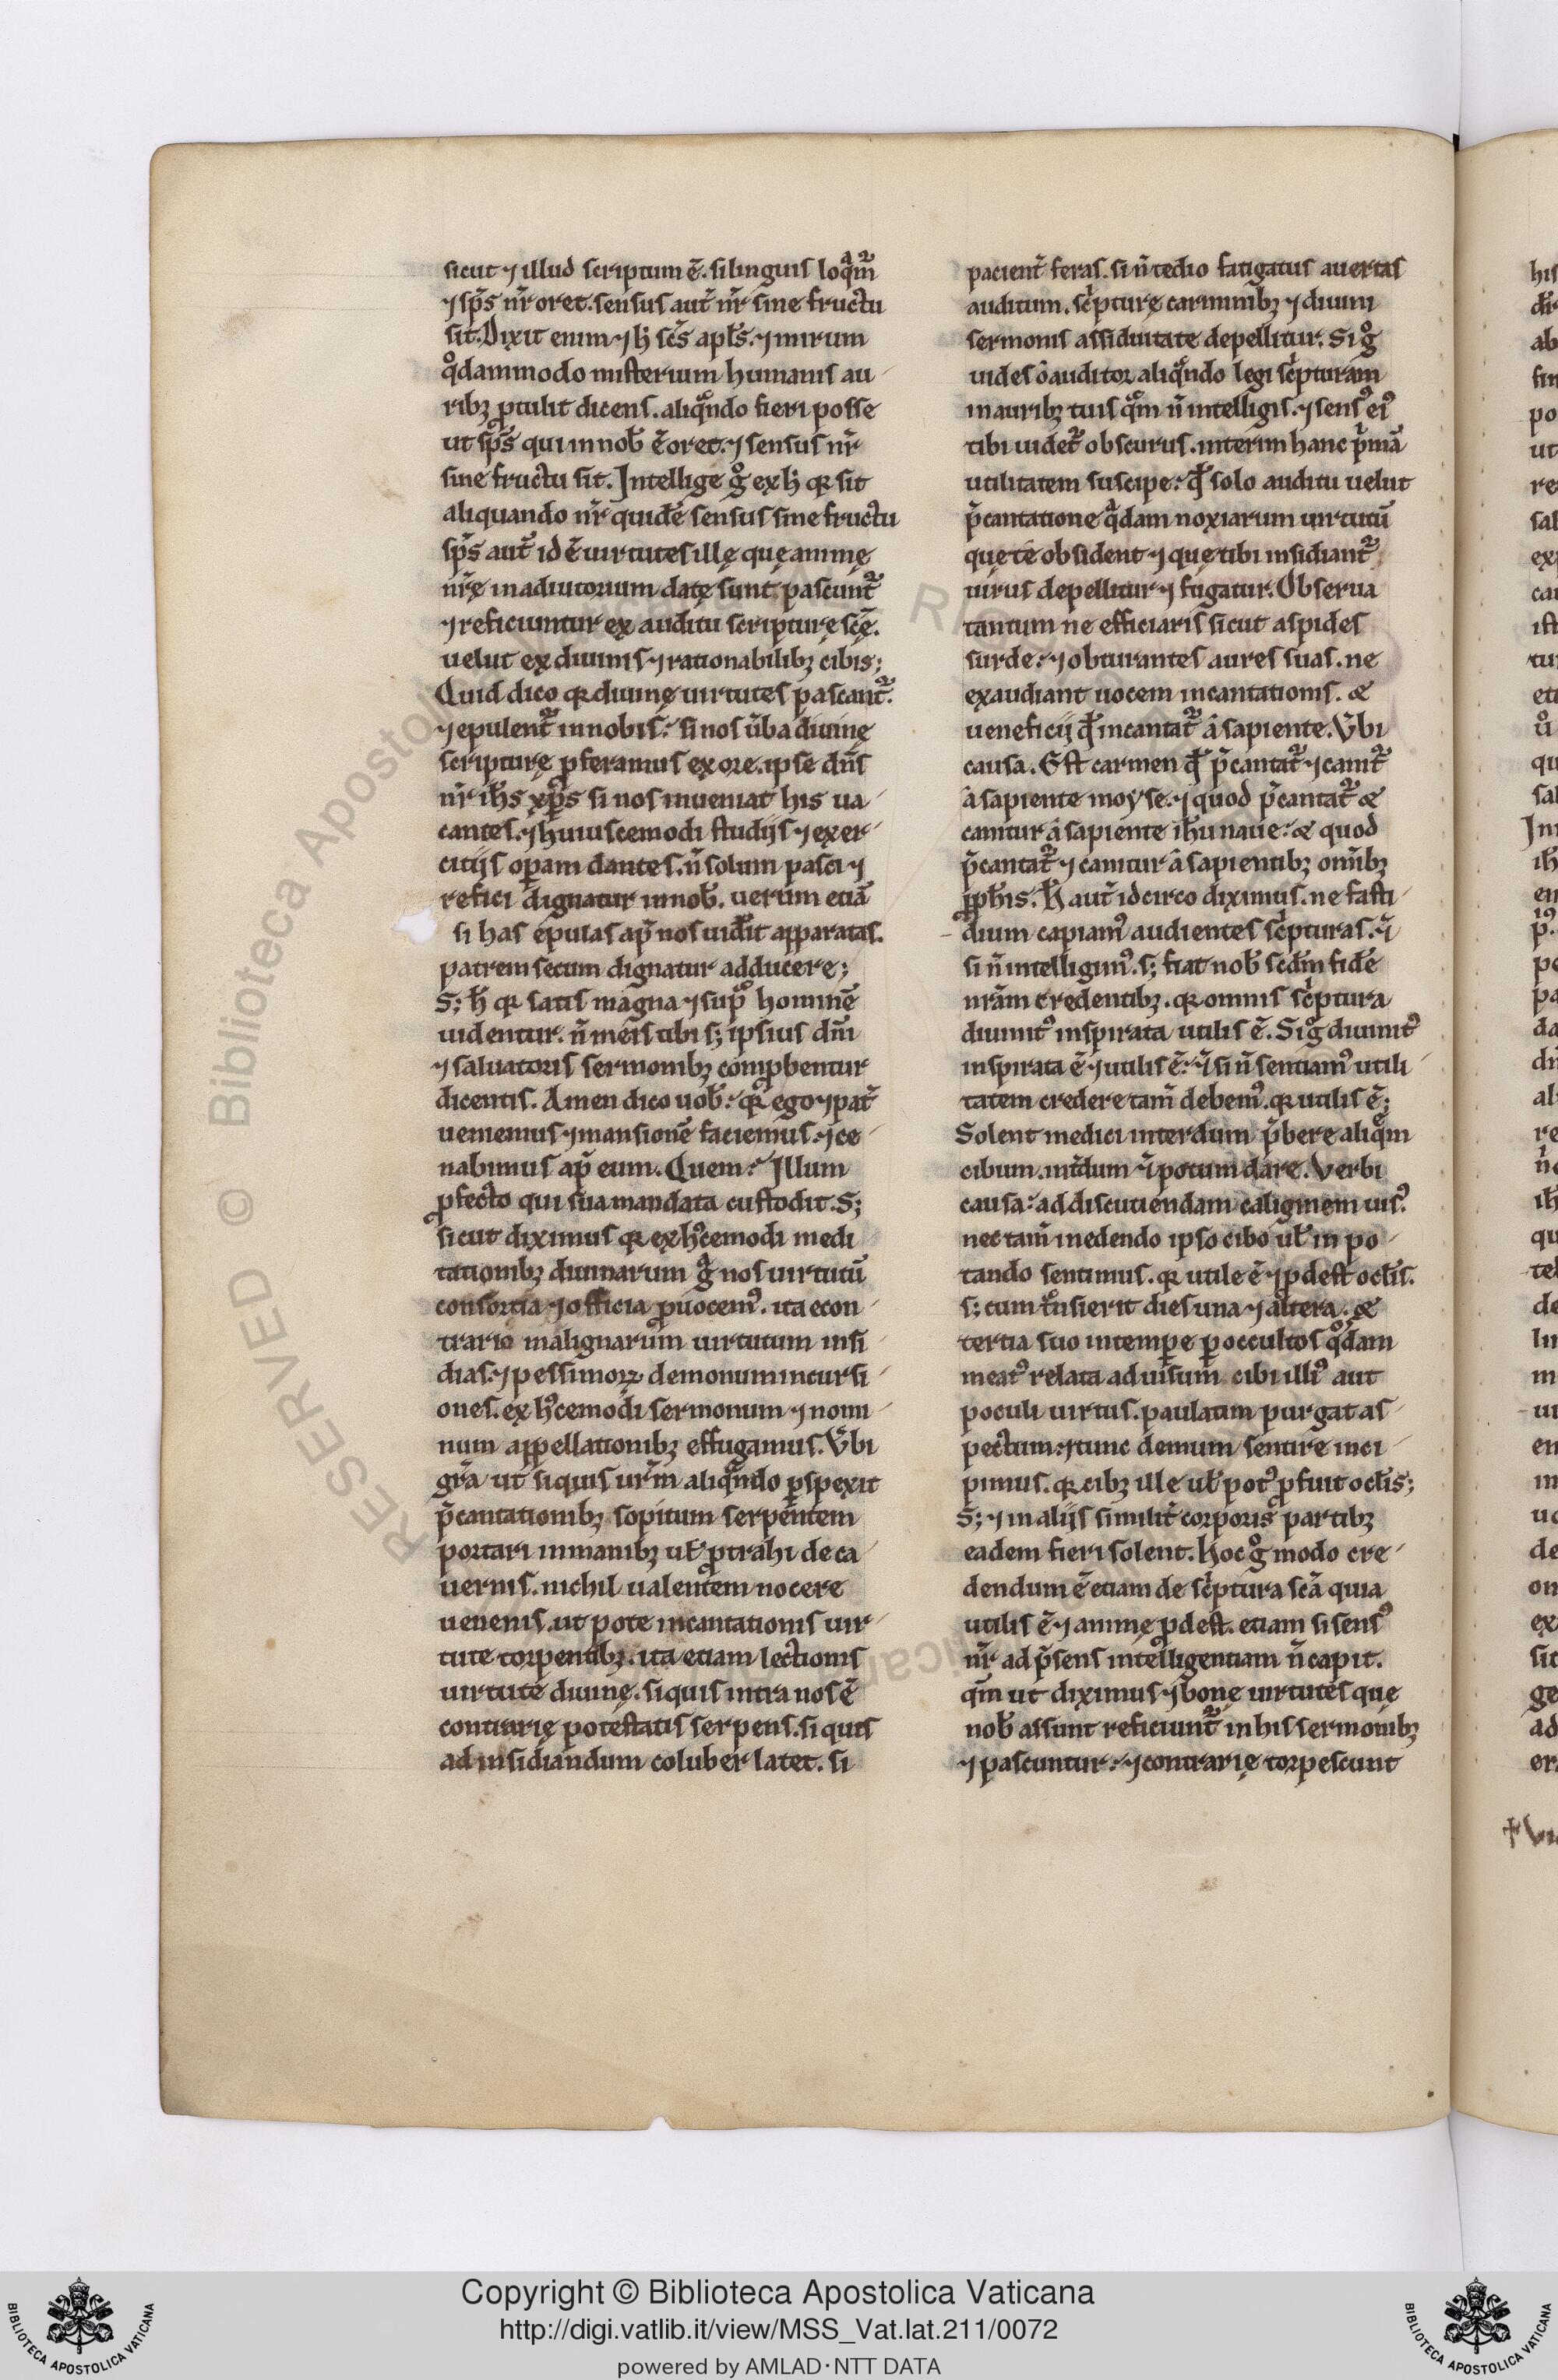 sicut ⁊ illud scriptum ē. si linguis loqᷓm̄
⁊ sp̄s nr̄ oret. sensus aut̄ nr̄ sine fructu
sit. Dixit enim ⁊ h̵ sc̄s apl̄s. ⁊ mirum
qͦdammodo misterium humanis au-
ribꝫ ꝓtulit dicens. aliqᷓndo fieri posse
ut sp̄s qui in nob̄ ē oret. ⁊ sensus nr̄
sine fructu sit. Intellige gͦ ex h̵ qꝛ sit
aliquando nr̄ quidē sensus sine fructu
sp̄s aut̄ id ē uirtutes illę que animę
nr̄ę in adiutorium datę sunt pascunt᷑
⁊ reficiuntur ex auditu scripturę scē.
uelut ex diuinis ⁊ rationabilibꝫ cibis;
Quid dico qꝛ diuinę uirtutes pascant᷑.
⁊ epulent᷑ in nobis? si nos ūba diuinę
scripturę ꝓferamus ex ore. ipse dn̄s
nr̄ ih̄s xp̄s si nos inueniat his ua-
cantes. ⁊ huiuscemodi studijs ⁊ exer-
citijs oꝑam dantes. n̄ solum pasci ⁊
refici dignatur in nob̄. uerum etiā
si has epulas ap̄ nos uid̄it apparatas.
patrem secum dignatur adducere;
S; h̄ qꝛ satis magna ⁊ supͦ hominē
uidentur. n̄ meis tibi s; ipsius dn̄i
⁊ saluatoris sermonibꝫ comꝓbentur
dicentis. Amen dico uob̄. qꝛ ego ⁊ pat̄
ueniemus ⁊ mansionē faciemus. ⁊ ce-
nabimus ap̄ eum. Quem? Illum
ꝓfecto qui sua mandata custodit. S;
sicut diximus qꝛ ex h᷒cemodi medi
tationibꝫ diuinarum gᷓ nos uirtutū
consortia ⁊ officia ꝓuocem᷒. ita econ-
trario malignarum uirtutum insi-
dias. ⁊ pessimoꝝ demonum incursi-
ones. ex h᷒cemodi sermonum ⁊ nomi-
num appellationibꝫ effugamus. Ūbi
gr̄a ut siquis ur̄m aliqᷓndo ꝑspexit
p̄cantationibꝫ sopitum serpentem
portari in manibꝫ ul̄ ꝓtrahi de ca-
uernis. nichil ualentem nocere
uenenis. ut pote incantationis uir-
tute torpentibꝫ. ita etiam lectionis
uirtute diuinę. siquis intra nos ē
contrarię potestatis serpens. si quis
ad insidiandum coluber latet. si
pacient̄ feras. si n̄ tedio fatigatus auertas
auditum. sc̍pturę carminibꝫ ⁊ diuini
sermonis assiduitate depellitur. Si gͦ
uides ó auditor aliqᷓndo legi sc̍pturam
in auribꝫ tuis qᷓm n̄ intelligis. ⁊ sens᷒ ei᷒
tibi uidet᷑ obscurus. interim hanc p̍mā
utilitatem suscipe. qđ solo auditu uelut
p̄cantatione qᷓdam noxiarum uirtutū
quę te obsident ⁊ quę tibi insidiant᷑
uirus depellitur ⁊ fugatur. Obserua
tantum ne efficiaris sicut aspides
surde. ⁊ obturantes aures suas. ne
exaudiant uocem incantationis. &
ueneficij qđ incantat᷑ á sapiente. Ūbi
causa. Est carmen qđ p̄cantat᷑ ⁊ canit᷑
á sapiente moyse. ⁊ quod p̄cantat᷑ &
canitur á sapiente ih̄u naue. & quod
p̄cantat᷑ ⁊ canitur á sapientibꝫ omībꝫ
ꝓph̄is. H̄ aut̄ idcirco diximus. ne fasti-
dium capiam᷒ audientes sc̍pturas. ⁊̄
si n̄ intelligim᷒. s; fiat nob̄ scd̄m fidē
nr̄am credentibꝫ. qꝛ omnis sc̍ptura
diuinit᷒ inspirata utilis ē. Si gͦ diuinit᷒
inspirata ē ⁊ utilis ē. ⁊̄ si n̄ sentiam᷒ utili-
tatem credere tam̄ debem᷒. qꝛ utilis ē;
Solent medici interdum p̄bere aliqᷓm
cibum. int̄dum ⁊̄ potum dare. Verbi
causa. ad discutiendam caliginem uis᷒.
nec tam̄ in edendo ipso cibo ul̄ in po-
tando sentimus. qꝛ utile ē ⁊ ꝓdest ocl̄is.
s; cum tᷓnsierit dies una ⁊ altera. &
tertia suo in tempe ꝑ occultos qͦsdam
meat᷒ relata ad uisum cibi illi᷒ aut
poculi uirtus. paulatim purgat as-
pectum. ⁊ tunc demum sentire inci-
pimus. qꝛ cibꝫ ille ul̄ pot᷒ ꝓfuit ocl̄is;
S; ⁊ in alijs similit̄ corporis partibꝫ
eadem fieri solent. Hoc gͦ modo cre-
dendum ē etiam de sc̍ptura scā quia
utilis ē ⁊ animę ꝓdest. etiam si sens᷒
nr̄ ad p̄sens intelligentiam n̄ capit.
qm̄ ut diximus ⁊ bonę uirtutes quę
nob̄ assunt reficiunt᷑ in his sermonibꝫ
⁊ pascuntur. ⁊ contrarię torpescunt
Copyright © Biblioteca Apostolica Vaticana
http://digi.vatlib.it/view/MSS_Vat.lat.211/0072
powered by AMLAD·NTT DATA